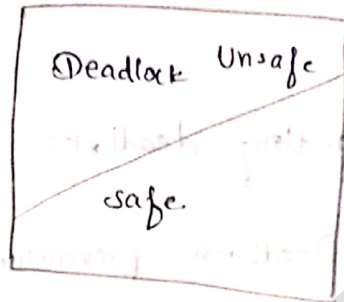 Deadlock Unsafe
safe